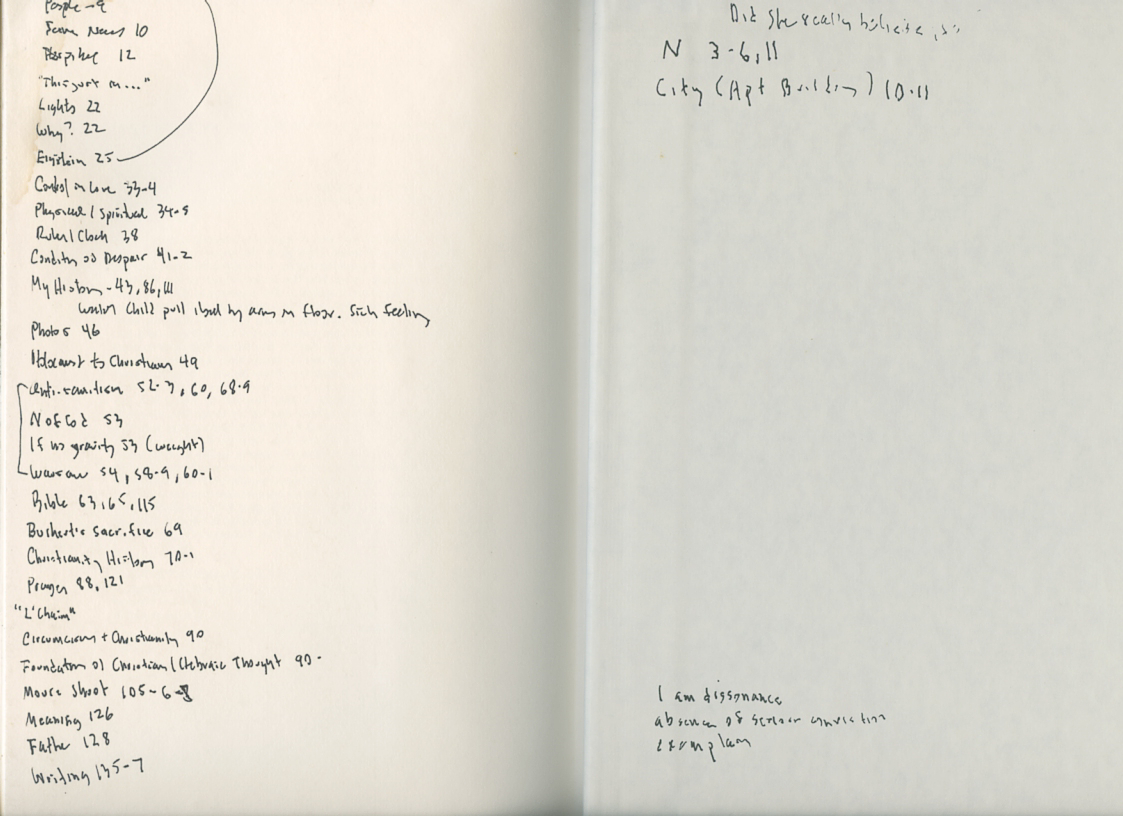 People - 9
Some News 10
12
"This york in..."
Lights 22
Why? 22
Einstein 25
Control in Love 33-4
Physical / Spiritual 34-5
Ruler / Clock 38
Condition of Despair 41-2
My History - 43, 86, 111
child pull by arms on floor. Sick feeling
Photos 46
Holocaust to Christians 49
Anti-semitism 52-3, 60, 68-9
N of God 53
If no gravity 53 (weight)
Warsaw 54, 58-9, 60-1
Bible 63, 65, 115
sacrifice 69
Christianity History 70-1
Prayer 88, 121
"L'Chaim"
Circumcision + Christianity 90
Foundation of Christian / Hebraic Thought 90-
Mouse Shoot 105-6
Meaning 126
Father 128
Writing 135-7
Did she really believe
N 3-6, 11
City (Apt Building) 10-11
I am dissonance
absence of conviction